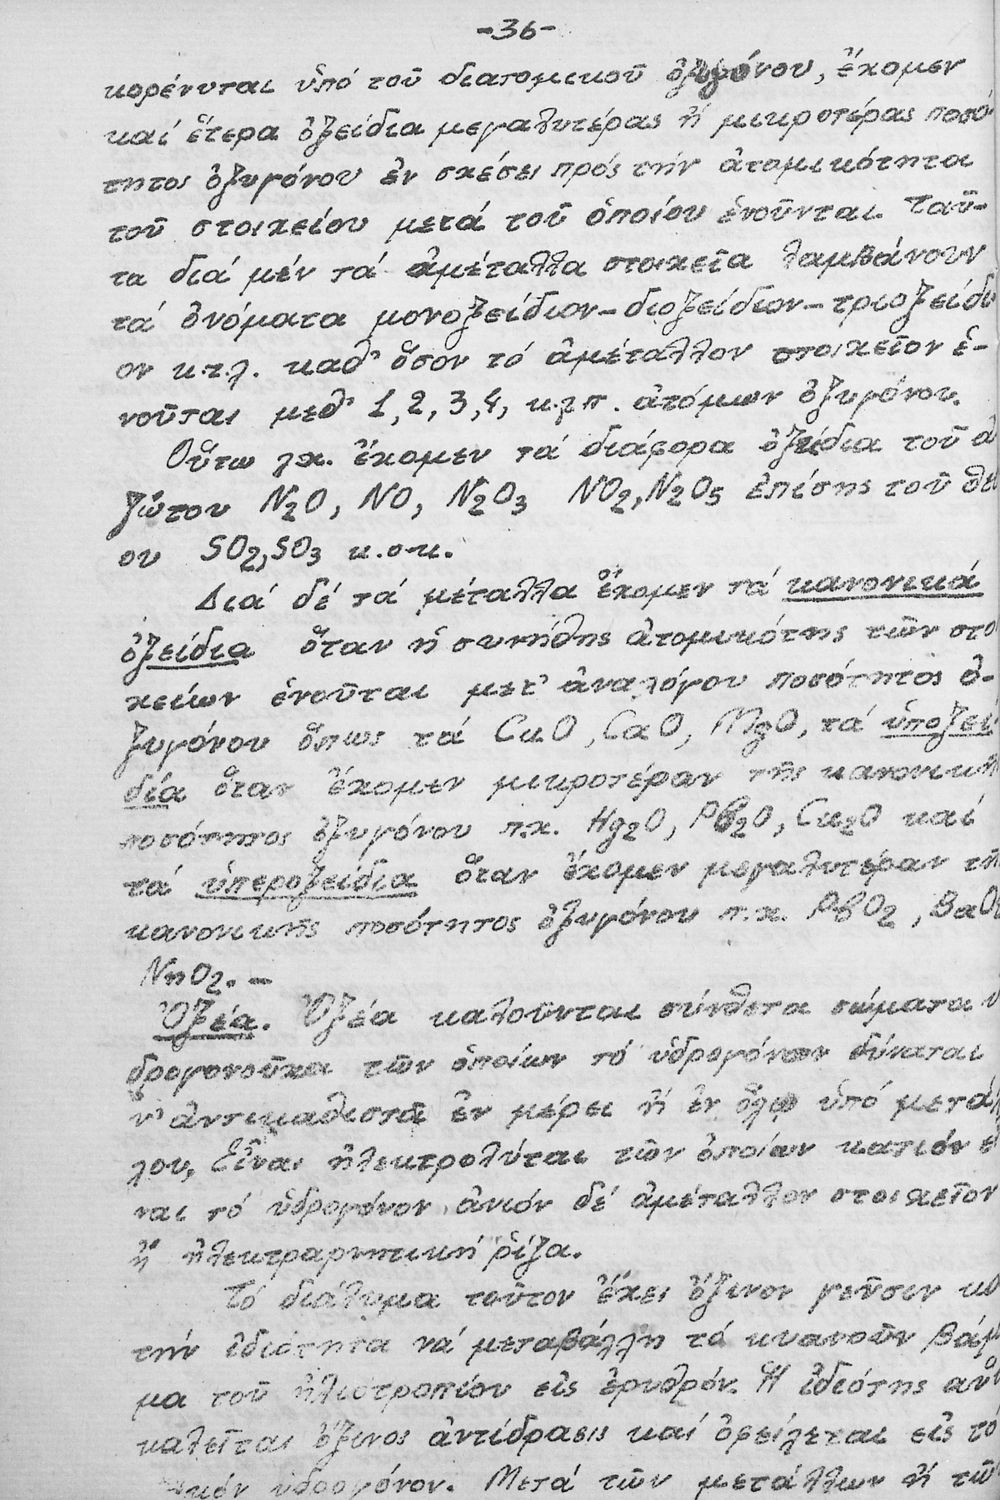 -36-
κορένυται ὑπό τοῦ διατομικοῦ ὀξυγόνου, ἔχομεν
καί ἕτερα ὀξείδια μεγαλυτέρας ἤ μικροτέρας ποσό
τητος ὀξυγόνου ἐν σχέσει πρός τήν ἀτομικότητα
τοῦ στοιχείου μετά τοῦ ὁποίου ἑνοῦνται. Ταῦ-
τα διά μέν τά ἀμέταλλα στοιχεῖα λαμβάνουν
τά ὀνόματα μονοξείδιον-διοξείδιον-τριοξείδι
ον κ.τ.λ. καθ' ὅσον τό ἀμέταλλον στοιχεῖον ἑ-
νοῦται μεθ' 1, 2, 3, 4, κ.λ.π. ἀτόμων ὀξυγόνου.
Οὕτω π.χ. ἔχομεν τά διάφορα ὀξείδια τοῦ ἀ
ζώτου N2O, NO, N2O3 NO2, N2O5 ἐπίσης τοῦ θεί
ου SO2, SO3 κ.ο.κ.
Διά δέ τά μέταλλα ἔχομεν τά κανονικά
ὀξείδια ὅταν ἡ συνήθης ἀτομικότης τῶν στοι
χείων ἑνοῦται μετ' ἀναλόγου ποσότητος ὀ-
ξυγόνου ὅπως τά CuO, CaO, MgO, τά ὑποξεί
δια ὅταν ἔχομεν μικροτέραν τῆς κανονικῆς
ποσότητος ὀξυγόνου π.χ. Hg2O, Pb2O, Cu2O καί
τά ὑπεροξείδια ὅταν ἔχομεν μεγαλυτέραν τῆς
κανονικῆς ποσότητος ὀξυγόνου π.χ. PbO2, BaO2
NnO2.-
Ὀξέα. Ὀξέα καλοῦνται σύνθετα σώματα ὑ
δρογονοῦχα τῶν ὁποίων τό ὑδρογόνον δύναται
ν' ἀντικαθιστᾶ ἐν μέρει ἤ ἐν ὅλῳ ὑπό μετάλ
λου, Εἶναι ἠλεκτρολύται τῶν ὁποίων κατιόν εἶ
ναι τό ὑδρογόνον, ἀνιόν δέ ἀμέταλλον στοιχεῖον
ἤ ἠλεκτραρνητική ῥίζα.
Τό διάλυμα τοῦτον ἔχει ὄξινον γεῦσιν καί
τήν ἰδιότητα νά μεταβάλλη τό κυανοῦν βάμ
μα τοῦ ἡλιοτροπίου εἰς ἐρυθρόν. Ἡ ἰδιότης αὕ
καλεῖται ὄξινος ἀντίδρασις καί ὀφείλεται εἰς τό
ὑδρογόνον. Μετά τῶν μετάλλων ἤ τῶν